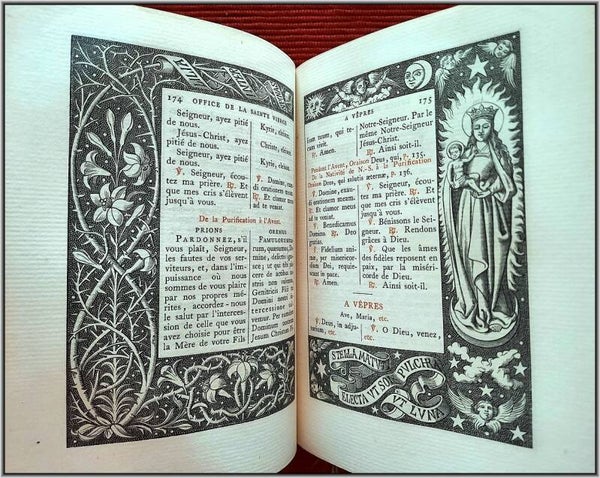 174 OFFICE DE LA SAINTE VIERGE
Seigneur, ayez pitié
de nous.
Jésus-Christ, ayez
pitié de nous.
Seigneur, ayez pitié
de nous.
℣. Seigneur, écou-
tez ma prière. ℟. Et
que mes cris s'élèvent
jusqu'à vous.
Kyrie, eleison.
Christe, eleison.
Kyrie, eleison.
℣. Domine,
exaudi
orationem meam.
℟. Et clamor meus
ad te veniat.
De la Purification à l'Avent.
PRIONS
PARDONNEZ, s'il
vous plaît, Seigneur,
les fautes de vos ser-
viteurs, et, dans l'im-
puissance où nous
sommes de vous plaire
par nos propres mé-
rites, accordez-nous le
salut par l'interces-
sion de celle que vous
avez choisie pour être
la Mère de votre Fils
OREMUS
FAMULORUM
Domine,
delictis
Genitricis Filii
Domini
intercessione
vemur. Per
Dominum
Jesum Christum
A VÊPRES 175
tuum, qui
tecum vivit.
℟. Amen.
Notre-Seigneur. Par le
même Notre-Seigneur
Jésus-Christ.
℟. Ainsi soit-il.
Pendant l'Avent, Oraison Deus, qui, p. 135.
De la Nativité de N.-S. à la Purification
Oraison Deus, qui salutis æternæ, p. 136.
℣. Domine, exau-
di orationem meam.
℟. Et clamor meus
ad te veniat.
℣. Benedicamus
Domino. ℟. Deo
gratias.
℣. Fidelium anim-
æ, per misericor-
diam Dei, requie-
scant in pace.
℟. Amen.
℣. Seigneur, écou-
tez ma prière. ℟. Et
que mes cris s'élèvent
jusqu'à vous.
℣. Bénissons le Sei-
gneur. ℟. Rendons
grâces à Dieu.
℣. Que les âmes
des fidèles reposent en
paix, par la miséri-
corde de Dieu.
℟. Ainsi soit-il.
A VÊPRES
Ave, Maria, etc.
℣. Deus, in adju-
torium, etc.
℣. O Dieu, venez,
etc.
STELLA MATUTI
ELECTA VT SOL PULCHRA
VT LUNA